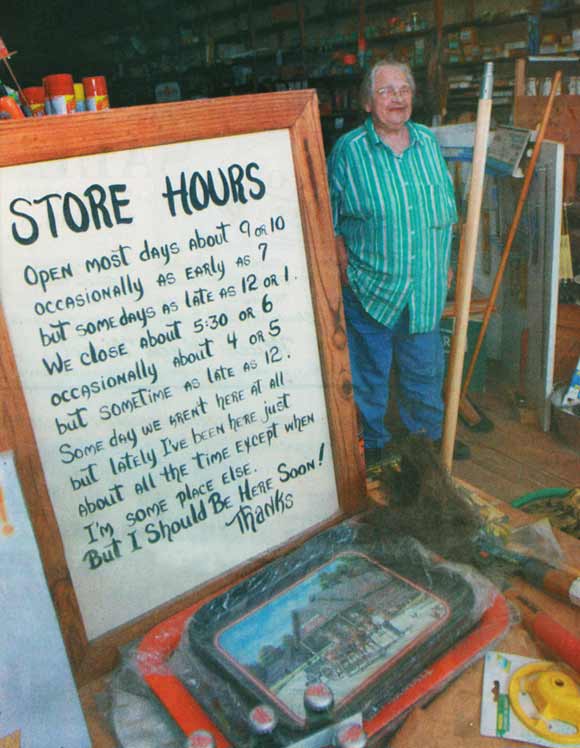 STORE HOURS
OPEN MOST DAYS ABOUT 9 OR 10
OCCASIONALLY AS EARLY AS 7
BUT SOME DAYS AS LATE AS 12 OR 1.
WE CLOSE ABOUT 5:30 OR 6
OCCASIONALLY ABOUT 4 OR 5
BUT SOMETIME AS LATE AS 12.
SOME DAY WE AREN'T HERE AT ALL
BUT LATELY I'VE BEEN HERE JUST
ABOUT ALL THE TIME EXCEPT WHEN
I'M SOME PLACE ELSE.
BUT I SHOULD BE HERE SOON!
THANKS